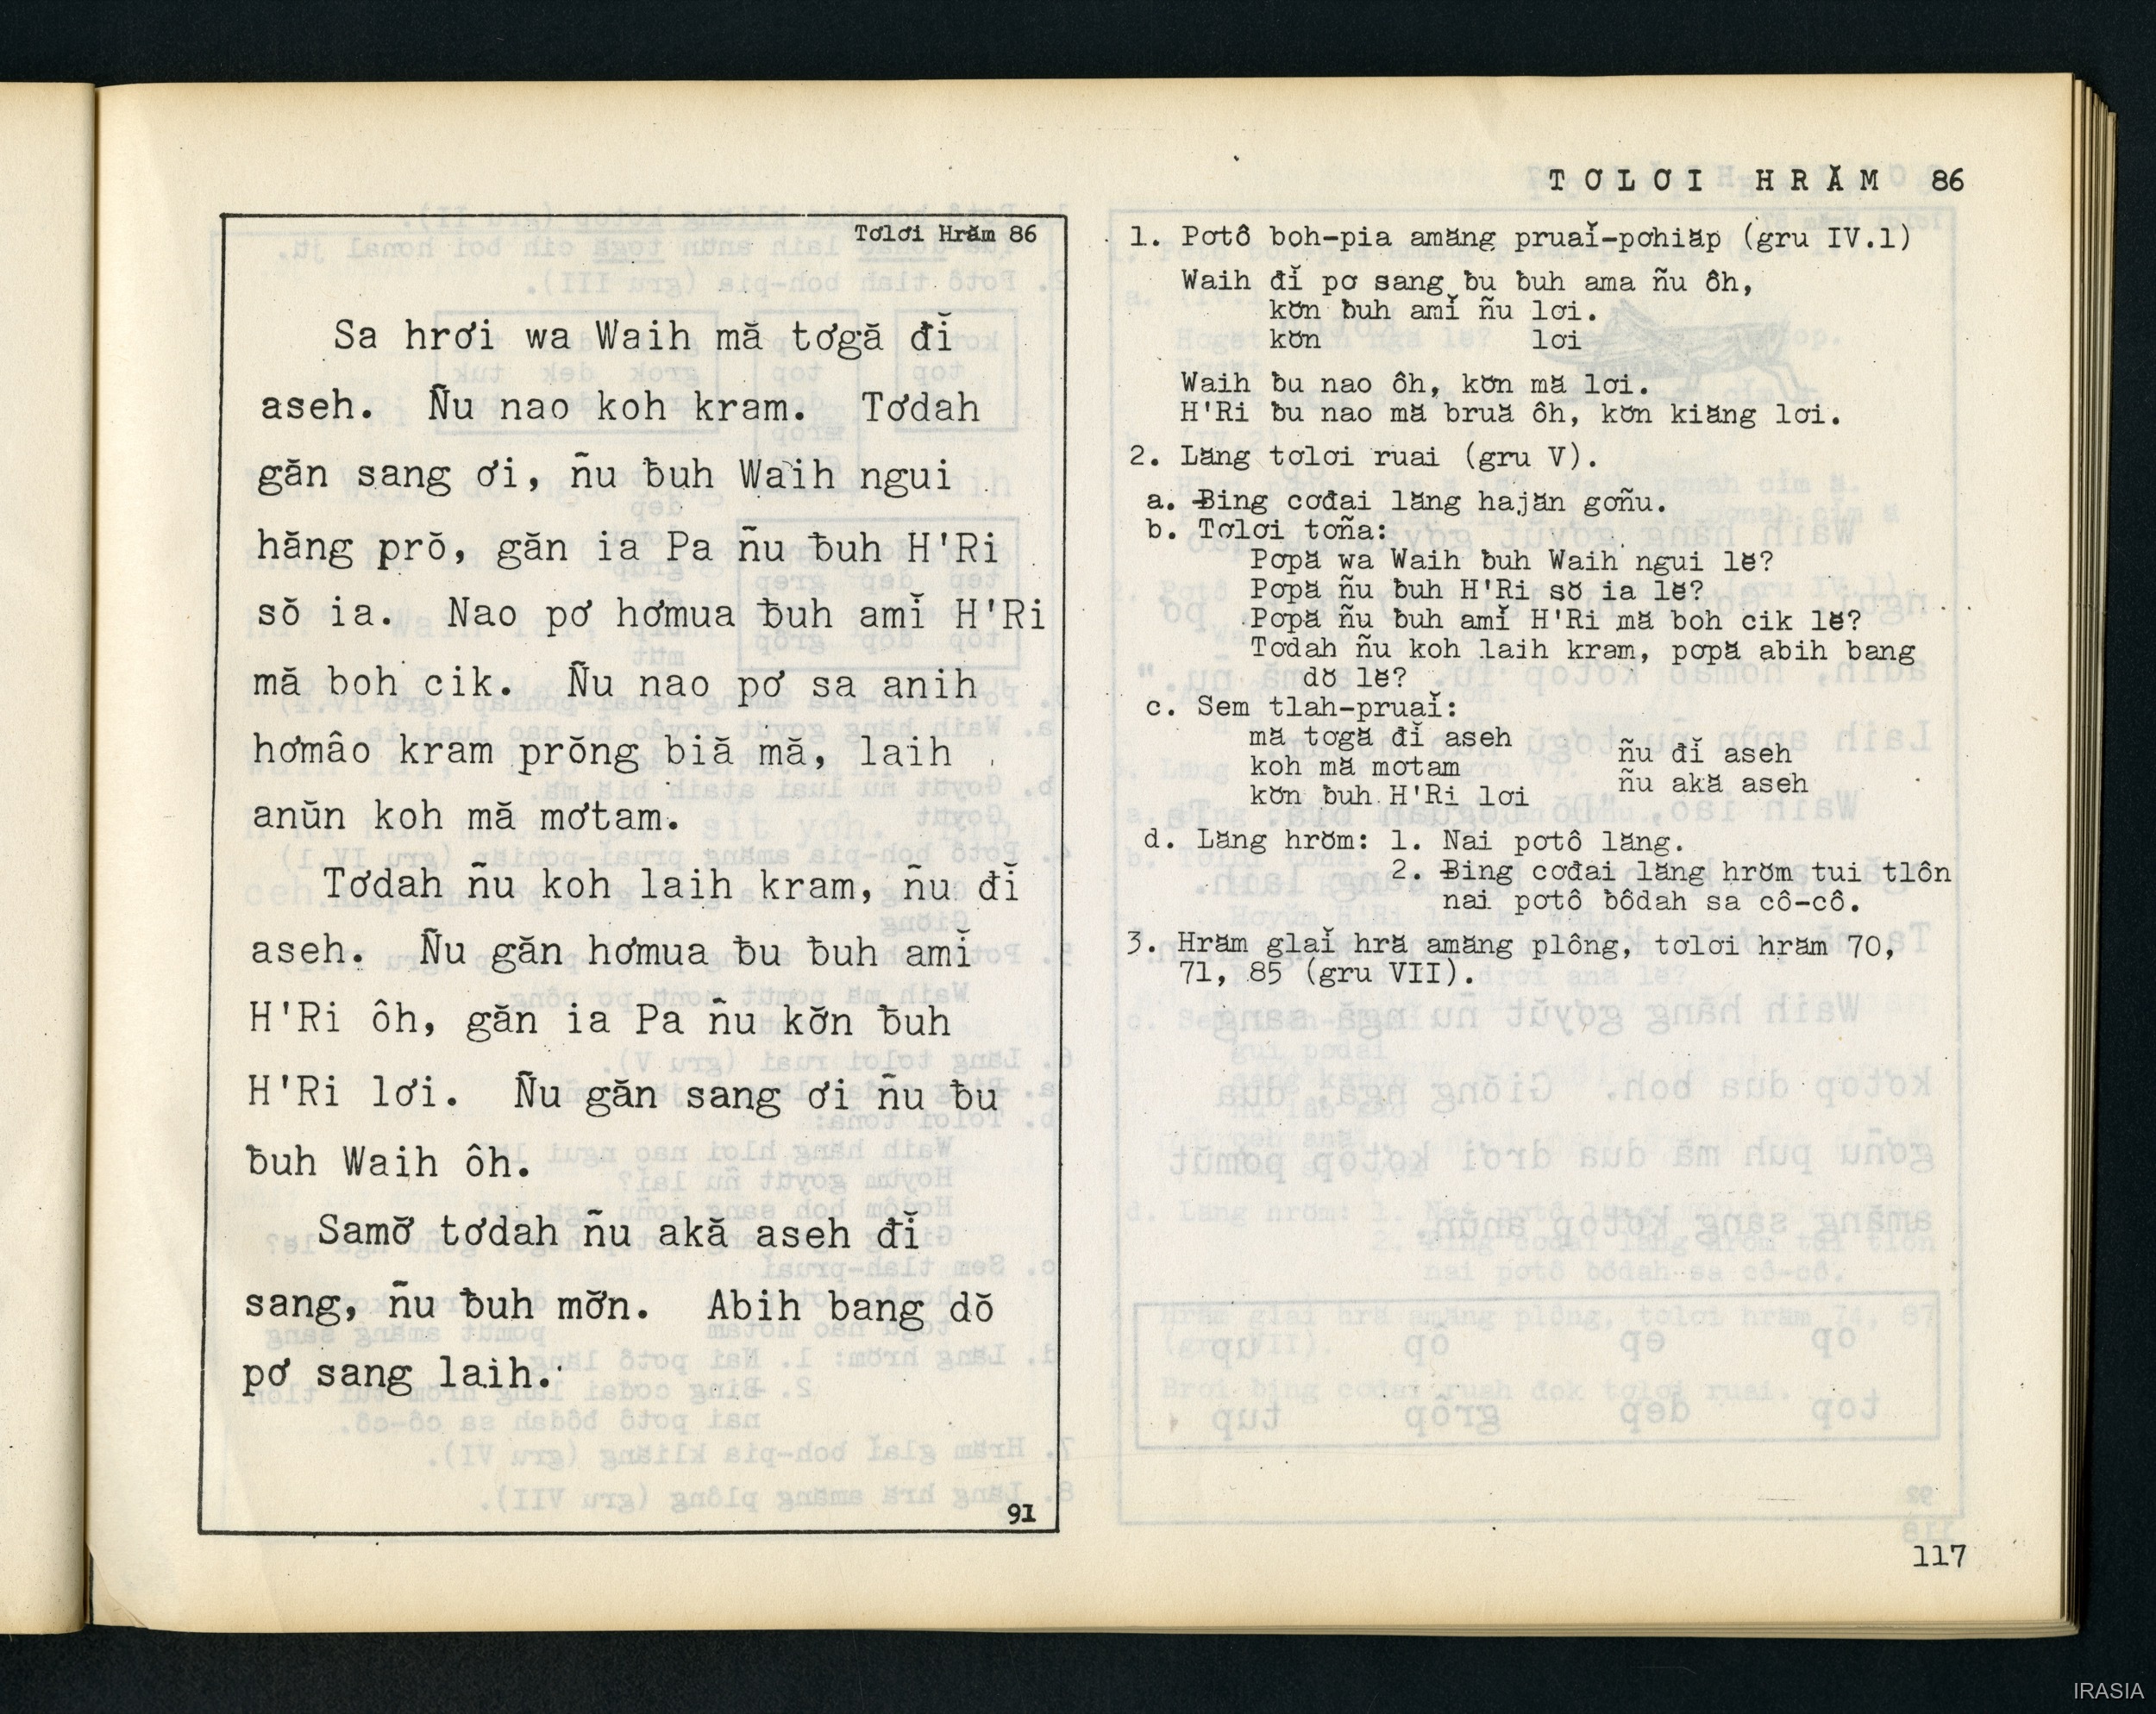 Tơlơi Hrăm 86
Sa hrơi wa Waih mă tơgă đĭ
aseh. Ñu nao koh kram. Tơdah
găn sang ơi, ñu ƀuh Waih ngui
hăng prŏ, găn ia Pa ñu ƀuh H'Ri
sŏ ia. Nao pơ hơmua ƀuh amĭ H'Ri
mă boh cik. Ñu nao pơ sa anih
hơmâo kram prŏng biă mă, laih
anŭn koh mă mơtam.
Tơdah ñu koh laih kram, ñu đĭ
aseh. Ñu găn hơmua ƀu ƀuh amĭ
H'Ri ôh, găn ia Pa ñu kơ̆n ƀuh
H'Ri lơi. Ñu găn sang ơi ñu ƀu
ƀuh Waih ôh.
Samơ̆ tơdah ñu akă aseh đĭ
sang, ñu ƀuh mơ̆n. Abih bang dŏ
pơ sang laih.
91
TƠLƠI HRĂM 86
1. Pơtô boh-pia amăng pruaĭ-pơhiăp (gru IV.1)
Waih đĭ pơ sang ƀu ƀuh ama ñu ôh,
kơ̆n ƀuh amĭ ñu lơi.
kơ̆n lơi
Waih ƀu nao ôh, kơ̆n mă lơi.
H'Ri ƀu nao mă bruă ôh, kơ̆n kiăng lơi.
2. Lăng tơlơi ruai (gru V).
a. Ƀing cơđai lăng hajăn gơñu.
b. Tơlơi tơña:
Pơpă wa Waih ƀuh Waih ngui lĕ?
Pơpă ñu ƀuh H'Ri sŏ ia lĕ?
Pơpă ñu ƀuh amĭ H'Ri mă boh cik lĕ?
Tơdah ñu koh laih kram, pơpă abih bang
dŏ lĕ?
c. Sem tlah-pruaĭ:
mă tơgă đĭ aseh
koh mă mơtam
kơ̆n ƀuh H'Ri lơi
ñu đĭ aseh
ñu akă aseh
d. Lăng hrŏm: 1. Nai pơtô lăng.
2. Ƀing cơđai lăng hrŏm tui tlôn
nai pơtô ƀôdah sa cô-cô.
3. Hrăm glaĭ hră amăng plông, tơlơi hrăm 70,
71, 85 (gru VII).
117
IRASIA